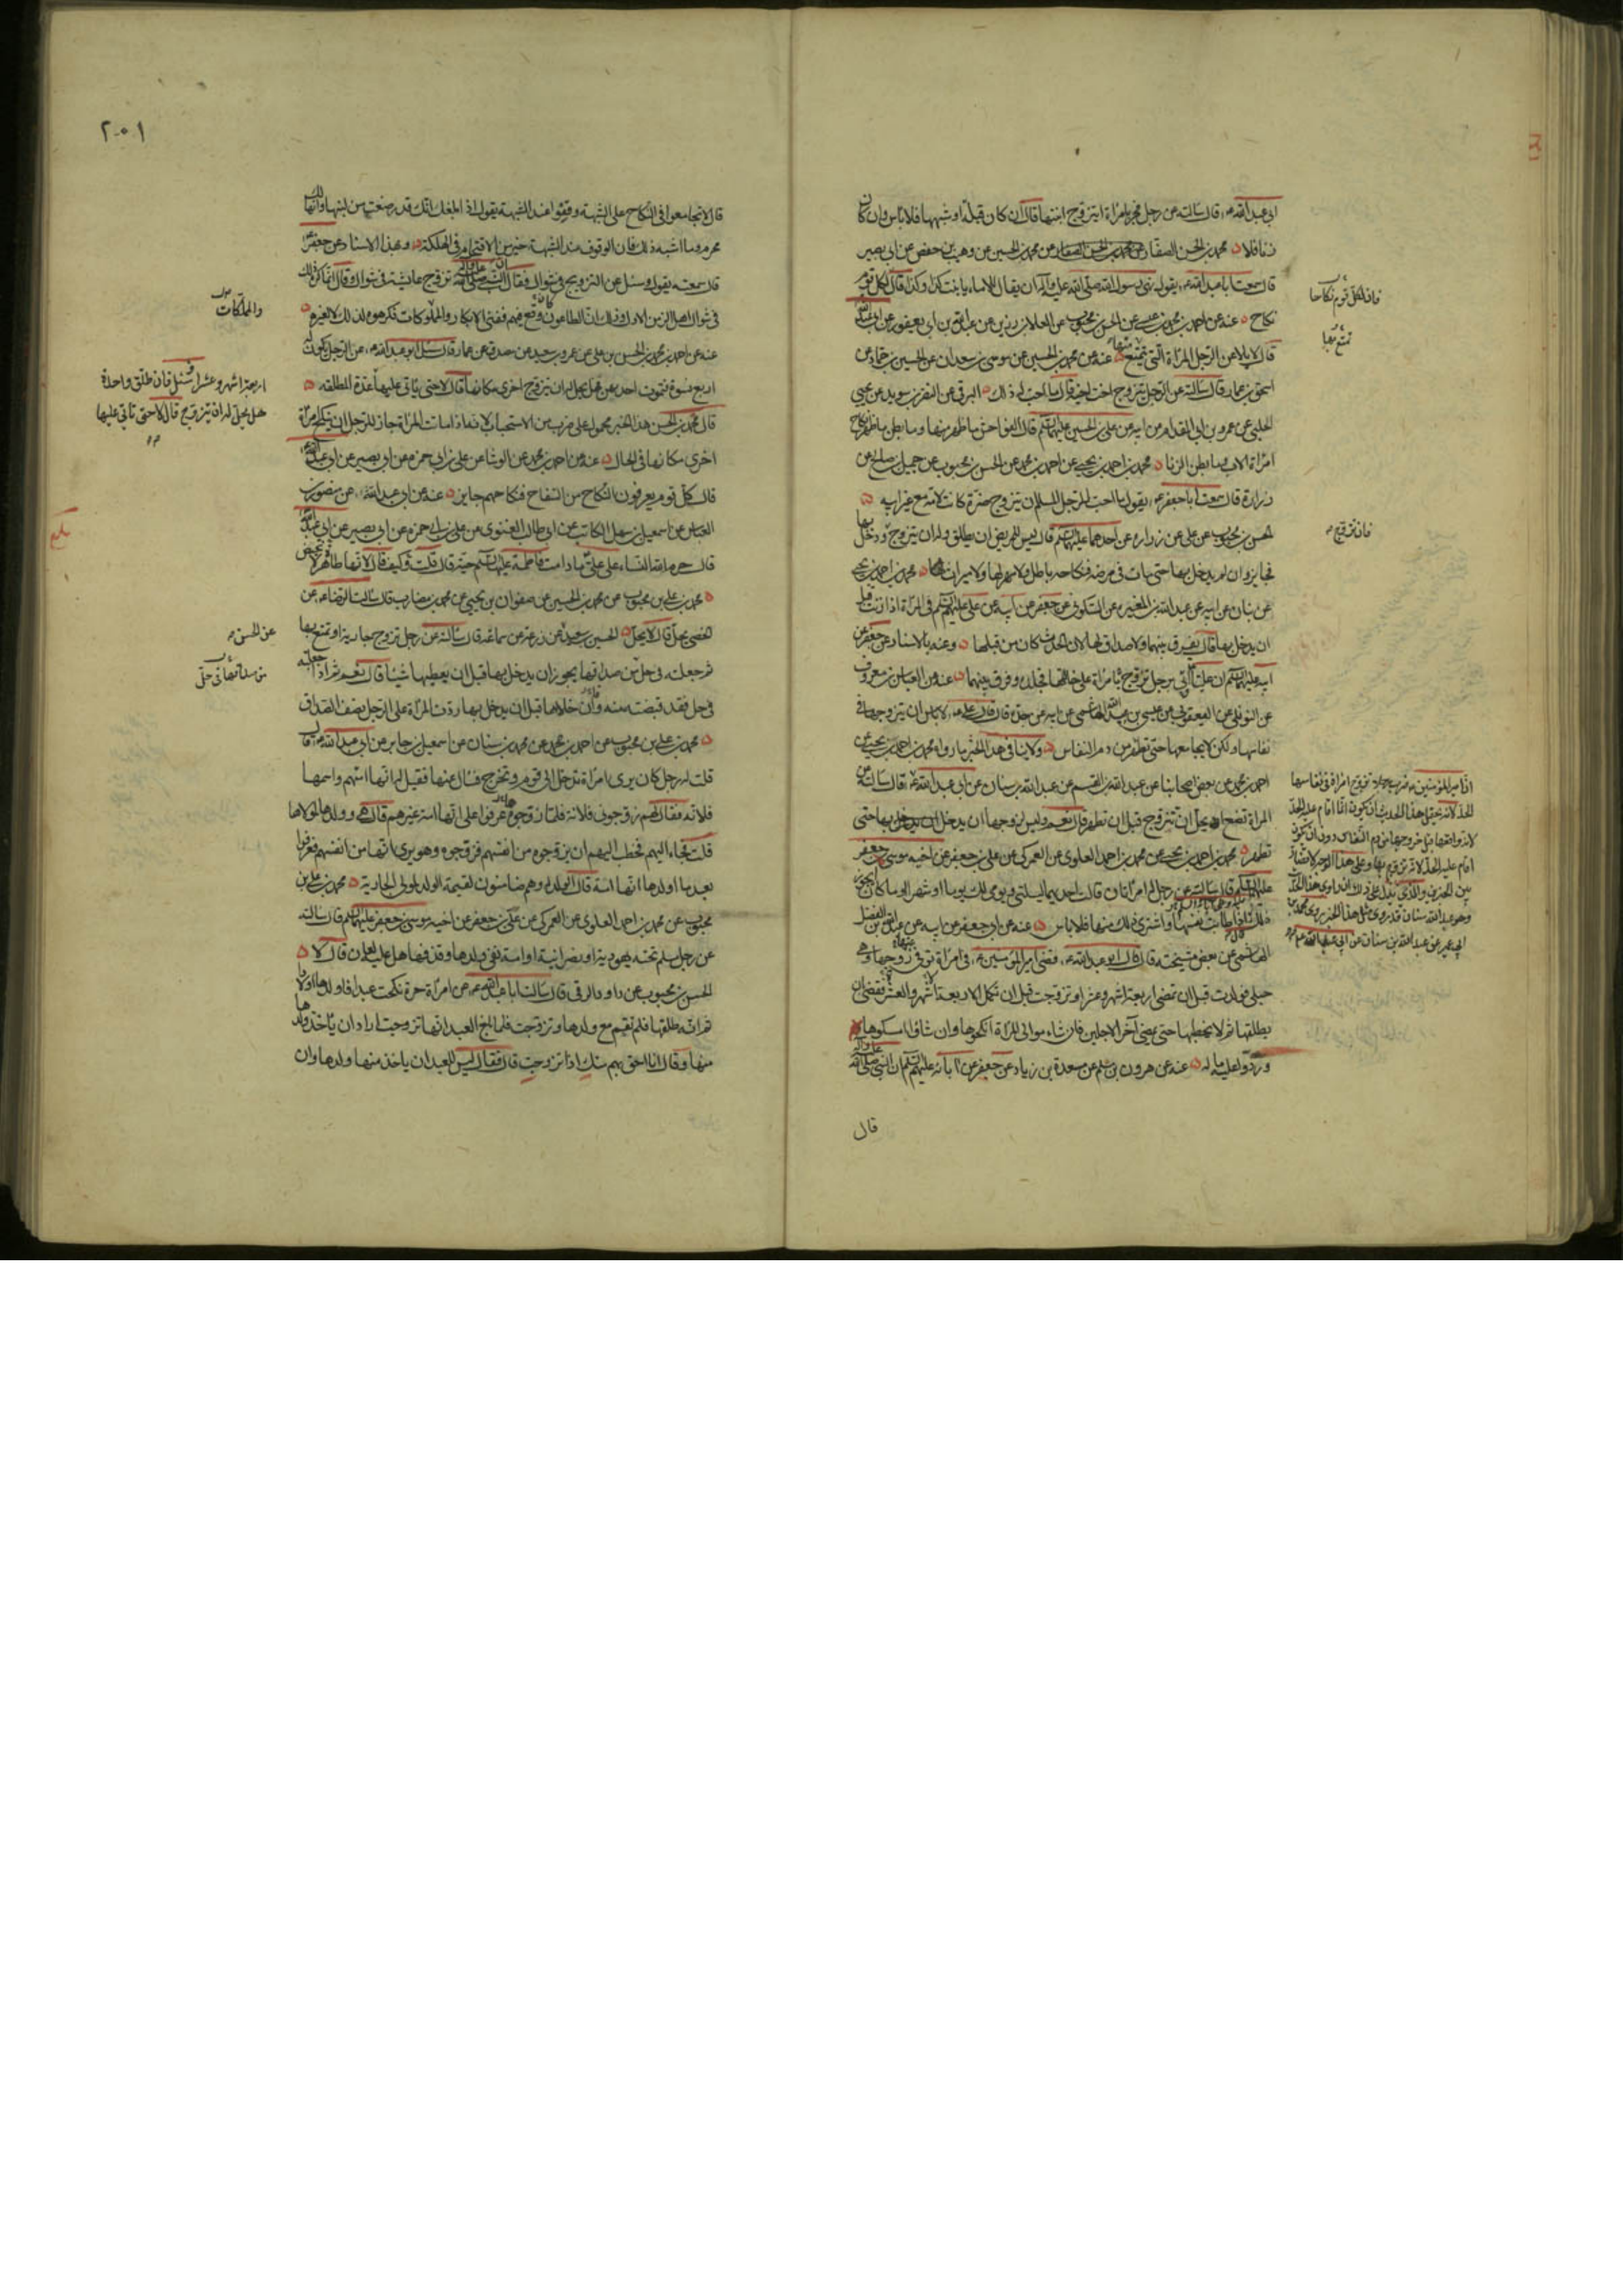 ابى عبدالله ع قال سالته عن رجل فجر بامراة ايتزوج ابنتها قال ان كان قبلة او شبهها فلا باس وان كان
زنا فلا محمد بن الحسن الصفار عن محمد بن الحسين عن وهيب بن حفص عن ابى بصير
قال سمعت ابا عبدالله ع يقول نهى رسول الله صلى الله عليه وآله ان يقال للاماء يا بنت كذا وكذا قال لكل قوم
نكاح عنه عن احمد بن محمد بن عيسى عن الحسن بن محبوب عن العلا بن رزين عن عبدالله بن ابى يعفور عن ابى عبدالله
قال لا يلاعن الرجل المراة التى تمتع منها عنه عن محمد بن الحسين عن موسى بن سعدان عن الحسين بن حماد عن
اسحق بن عمار قال سالته عن الرجل يتزوج اخت اخيه قال ما احب له ذلك البرقى عن النضر بن سويد عن يحيى
الحلبى عن عمرو بن ابى المقدام عن ابيه عن على بن الحسين عليهما السلم قال الفواحش ما ظهر منها وما بطن ما ظهر نكاح
امراة الاب وما بطن الزنا محمد بن احمد بن يحيى عن احمد بن محمد عن الحسن بن محبوب عن جميل بن صالح عن
زرارة قال سمعت ابا جعفر ع يقول ما احب للرجل المسلم ان يتزوج ضرة كانت لامه مع غير ابيه
الحسن بن محبوب عن على عن زراره عن احدهما عليهما السلم قال ليس للمريض ان يطلق وله ان يتزوج ودخل بها
فجايز وان لم يدخل بها حتى مات فى مرضه فنكاحه باطل ولا مهر لها ولا ميراث محمد بن احمد بن يحيى
عن بنان عن ابيه عن عبدالله بن المغيره عن السكونى عن جعفر عن ابيه عن على عليهم السلم فى المراة اذا زنت قبل
ان يدخل بها قال يفرق بينهما ولا صداق لها لان الحدث كان من قبلها وعنه بالاسناد عن جعفر عن
ابيه عليهما السلم ان عليا اتى برجل تزوج بامراة على خالتها فجلده وفرق بينهما عنه عن العباس بن معروف
عن النوفلى عن اليعقوبى عن عيسى بن عبدالله الهاشمى عن ابيه عن جده قال قال على ع لا باس ان يتزوجها فى
نفاسها ولكن لا يجامعها حتى تطهر من دم النفاس ولا ينافى هذا الخبر ما رواه محمد بن احمد بن يحيى عن
احمد بن محمد عن بعض اصحابنا عن عبدالله بن القسم عن عبدالله بن سنان عن ابى عبدالله ع قال سالته عن
المراة تضع ايحل ان تتزوج قبل ان تطهر قال نعم وليس لزوجها ان يدخل بها حتى
تطهر محمد بن احمد بن يحيى عن محمد بن احمد العلوى عن العمركى عن على بن جعفر عن اخيه موسى بن جعفر
عليهما السلم قال سالته عن رجل له امراتان قالت احديهما ليلتى ويومى لك يوما او شهرا او ما كان يجوز
ذلك قال اذا طابت نفسها واشترى ذلك منها فلا باس عنه عن ابى جعفر عن ابيه عن عبدالله بن الفضل
الهاشمى عن بعض مشيخته قال قال ابو عبدالله ع قضى امير المؤمنين ع فى امراة توفى زوجها وهى
حبلى فولدت قبل ان تمضى اربعة اشهر وعشر وتزوجت قبل ان تكمل الاربعة اشهر والعشر فقضى ان
يطلقها ثم لا يخطبها حتى يمضى آخر الاجلين فان شاء موالى المراة انكحوها وان شاؤا امسكوها
وردوا عليه ماله عنه عن هرون بن مسلم عن مسعدة بن زياد عن جعفر عن آبائه عليهم السلم ان النبى صلى الله عليه وآله
قال
فان لكل قوم نكاحا
تمتع بها
فان تزوج
ان امير المؤمنين ع ضرب رجلا تزوج امراة فى نفاسها
الحد لانه يحتمل هذا الحديث ان يكون انما اقام عليه الحد
لانه واقعها قبل خروجها من دم النفاس دون ان يكون
اقام عليه الحد لانه تزوج بها وعلى هذا الوجه لا تنافى
بين الخبرين والذى يدل على ذلك ان راوى هذا الحديث
وهو عبدالله بن سنان قد روى مثل هذا الخبر روى محمد بن
ابى عمير عن عبدالله بن سنان عن ابى عبدالله ع
٢٠١
قال لا تجامعوا فى النكاح على الشبهة وقفوا عند الشبهة يقول اذا بلغك انك قد رضعت من لبنها وانها لك
محرم وما اشبه ذلك فان الوقوف عند الشبهة خير من الاقتحام فى الهلكة وبهذا الاسناد عن جعفر ع
قال سمعته يقول وسئل عن التزويج فى شوال فقال ان النبى صلى الله عليه وآله تزوج عايشة فى شوال وقال انما كره ذلك
فى شوال اهل الزمن الاول وذلك ان الطاعون كان وقع فيهم ففنى الابكار والمملوكات فكرهوه لذلك لا لغيره
عنه عن احمد بن محمد بن الحسن بن على عن عمرو بن سعيد عن مصدق عن عمار قال سئل ابو عبدالله ع عن الرجل يكون له
اربع نسوة فتموت احديهن فهل يحل له ان يتزوج اخرى مكانها قال لا حتى ياتى عليها عدة المطلقه
قال محمد بن الحسن هذا الخبر محمول على ضرب من الاستحباب لانه اذا ماتت المراة جاز للرجل ان ينكح امراة
اخرى مكانها فى الحال عنه عن احمد بن محمد عن الوشا عن على بن ابى حمزه عن ابى بصير عن ابى عبدالله ع
قال كل قوم يعرفون النكاح من السفاح فنكاحهم جايز عنه عن ابى عبدالله عن منصور بن
العباس عن اسمعيل بن سهل الكاتب عن ابى طالب الغنوى عن على بن ابى حمزه عن ابى بصير عن ابى عبدالله ع
قال حرم الله النساء على على ما دامت فاطمة عليها السلم حية قال قلت وكيف قال لانها طاهر لا تحيض
محمد بن على بن محبوب عن محمد بن الحسين عن صفوان بن يحيى عن محمد بن مضارب قال سالت الرضا ع عن
الخصى يحل قال لا يحل الحسين بن سعيد عن زرعة عن سماعه قال سالته عن رجل تزوج جارية او تمتع بها
ثم جعلته فى حل من صداقها يجوز ان يدخل بها قبل ان يعطيها شيئا قال نعم اذا جعلته
فى حل فقد قبضته منه وان خلاها قبل ان يدخل بها ردت المراة على الرجل نصف الصداق
محمد بن على بن محبوب عن احمد بن محمد عن محمد بن سنان عن اسمعيل بن جابر عن ابى عبدالله ع قال
قلت له رجل كان يرى امراة تدخل الى قوم وتخرج فسال عنها فقيل له انها امتهم واسمها
فلانه فقال لهم زوجونى فلانة فلما زوجوه عرفوا على انها امة غيرهم قال هى وولدها لمولاها
قلت فجاء اليهم فخطب اليهم ان يزوجوه من انفسهم فزوجوه وهو يرى انها من انفسهم فعرفوا
بعد ما اولدها انها امة قال الولد له وهم ضامنون لقيمة الولد لمولى الجارية محمد بن على بن
محبوب عن محمد بن احمد العلوى عن العمركى عن على بن جعفر عن اخيه موسى بن جعفر عليهما السلم قال سالته
عن رجل مسلم تحته يهودية او نصرانية او امة نفى ولدها وقذفها هل عليه لعان قال لا
الحسن بن محبوب عن داود الرقى قال سالت ابا عبدالله ع عن امراة حرة نكحت عبدا فاولدها اولادا
ثم انه طلقها فلم تقم مع ولدها وتزوجت فلما بلغ العبد انها تزوجت اراد ان ياخذ ولدها
منها وقال انا احق بهم منك اذا تزوجت قال فقال ليس للعبد ان ياخذ منها ولدها وان
والمملكات
اربعة اشهر وعشرا وسئل فان طلق واحدة
هل يحل له ان يتزوج قال لا حتى تاتى عليها
عن الحسن
من صداقها فى حل